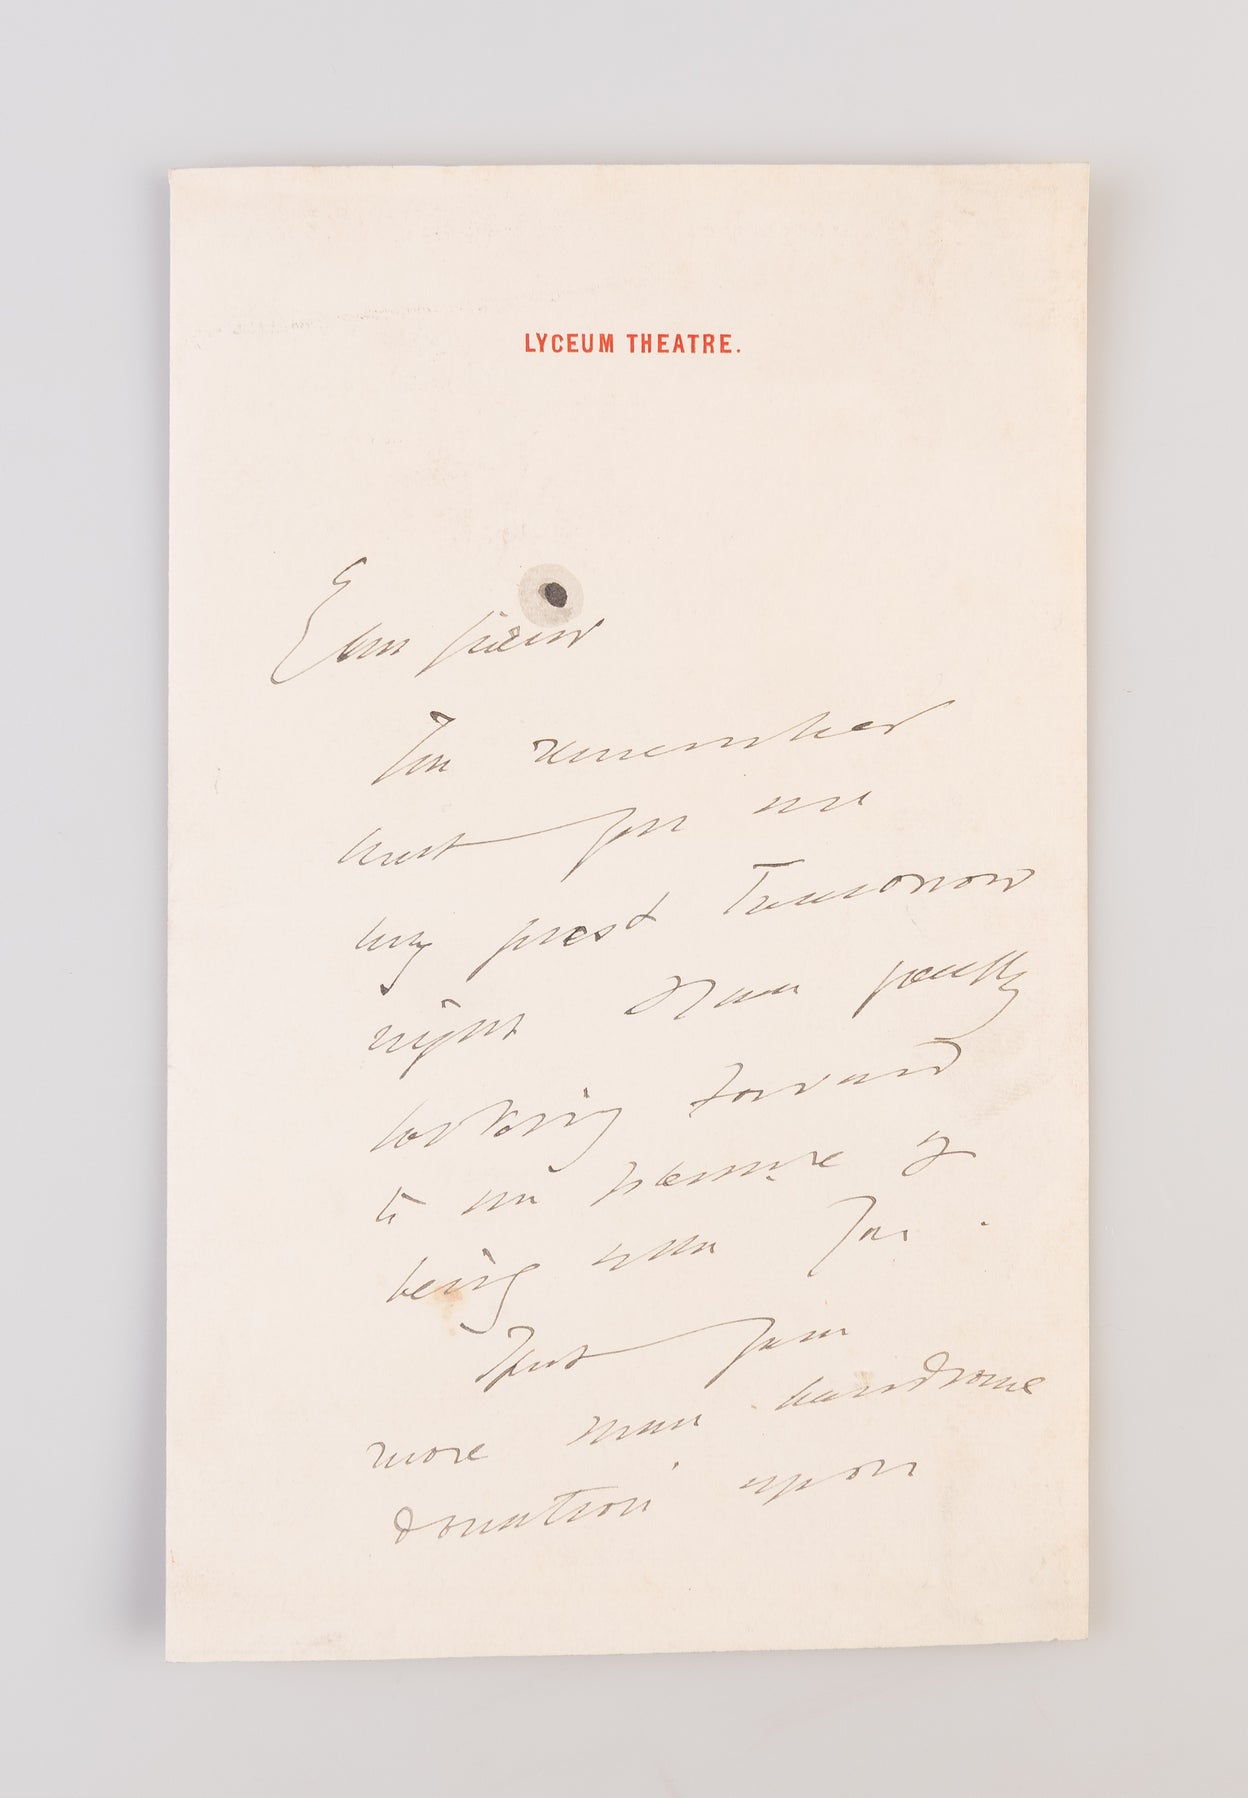 LYCEUM THEATRE.
Dear friend
You remember
that you are
my guest Tomorrow
night & I am greatly
looking forward
to the pleasure of
being with you.
Put your
more than handsome
donation upon